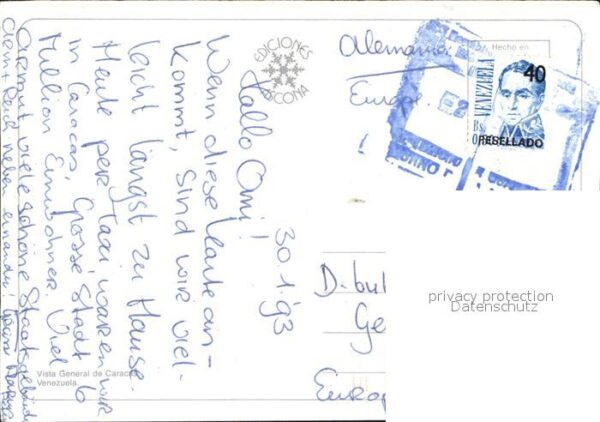 Hallo Omi! 30.1.93
Wenn diese Karte an-
kommt, sind wir viel-
leicht längst zu Hause.
Heute per Taxi waren wir
in Caracas, Grosse Stadt 6
Million Einwohner. Viel
Armut viele schöne Staatsgebäude
Arm + Reich neben einander
EDICIONES
CONA
Alemania
Europa
Hecho en
VENEZUELA
40
Bs.
RESELLADO
D-
Ge
Europ
privacy protection
Datenschutz
Vista General de Caracas
Venezuela.